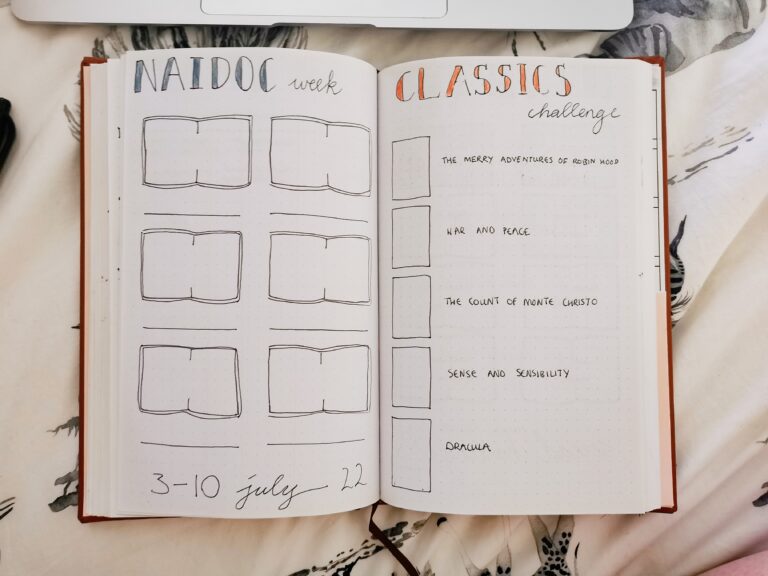 NAIDOC week
3-10 july 22
CLASSICS
challenge
THE MERRY ADVENTURES OF ROBIN HOOD
WAR AND PEACE
THE COUNT OF MONTE CHRISTO
SENSE AND SENSIBILITY
DRACULA